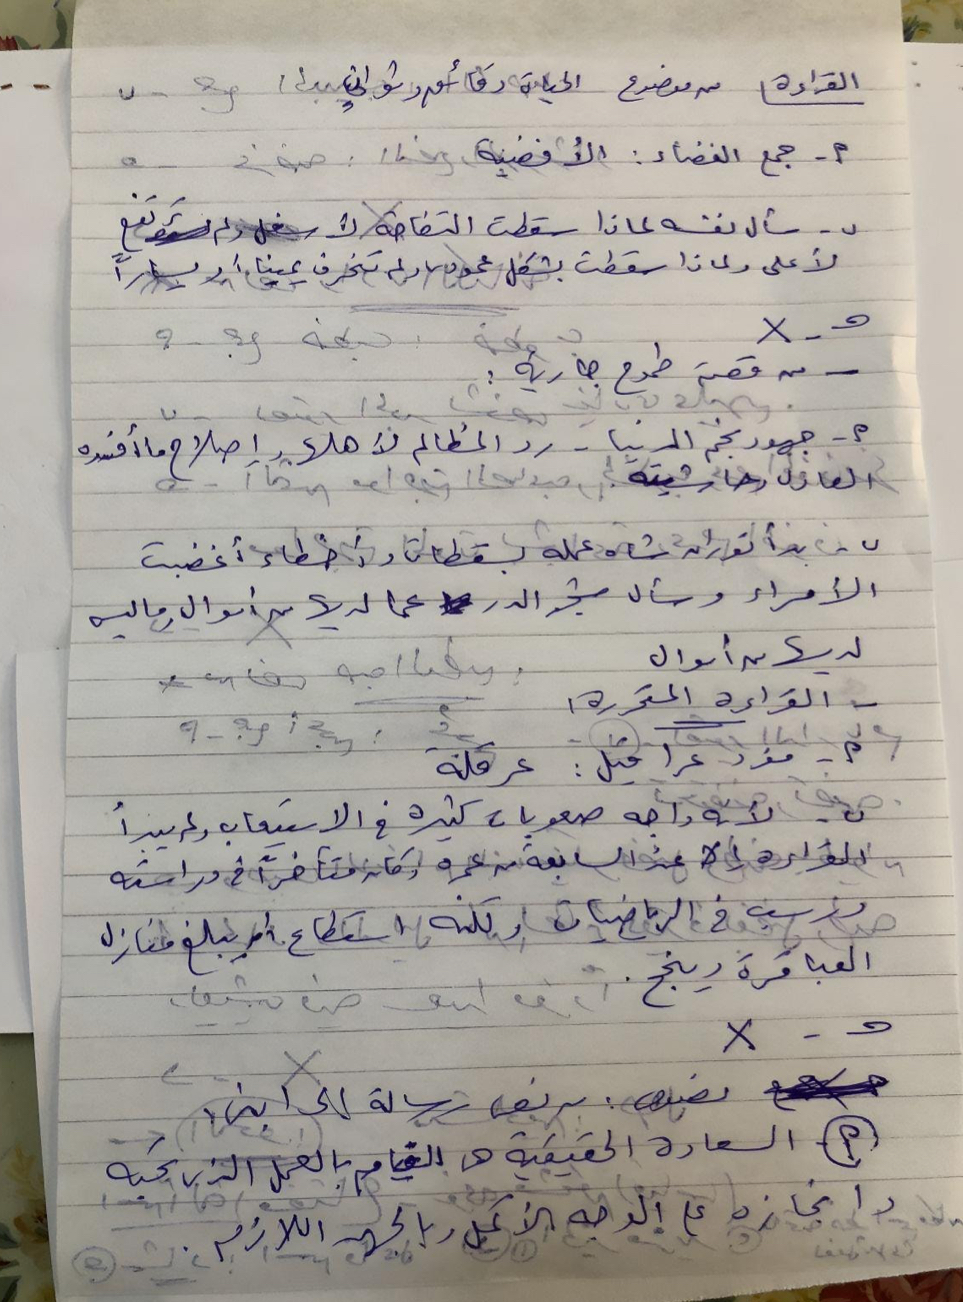 القراءة من موضوع الحياة دقائق وثوانٍ
م - جمع الفضاء : الأفضية
ب - سأل نفسه لماذا سقطت التفاحة لأسفل ولم ترتفع
لأعلى ولماذا سقطت بشكل عمودي ولم تنحرف يمينا أو يساراً
حـ - X
- من قصة طموح جارية :
م - جهود نجم الدين - رد المظالم لأهلها وإصلاح ما أفسده
العادل وحاشيته .
ب - بدأ توران شاه عمله بسقطات وأخطاء أغضبت
الأمراء وسأل شجر الدر عما لديها من أموال وما ليس
لديها من أموال
- القراءة المتحررة
م - مفرد عراقيل : عرقلة
ب - لأنه واجه صعوبات كثيرة في الاستيعاب ولم يبدأ
القراءة إلا عند السابعة من عمره وكان متأخراً في دراسته
ورسب في الرياضيات ولكنه استطاع أن يبلغ منازل
العباقرة وينجح .
حـ - X
نصوص : من نص رسالة إلى ابنتي
م السعادة الحقيقية هي القيام بالعمل الذي نحبه
وإنجازه على الوجه الأكمل وبالجهد اللازم .